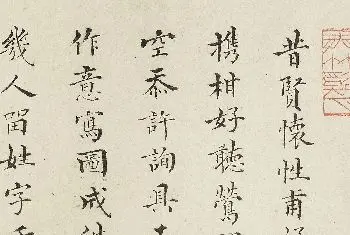 昔賢懷性甫
攜柑好聽鶯
空忝許詢具
作意寫圖成
幾人留姓字